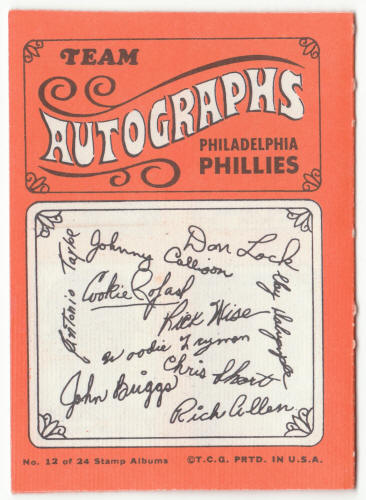 TEAM
AUTOGRAPHS
PHILADELPHIA
PHILLIES
Antonio Taylor
Johnny Callison
Don Lock
Cookie Rojas
Rick Wise
Woodie Fryman
Chris Short
John Briggs
Rich Allen
No. 12 of 24 Stamp Albums
©T.C.G. PRTD. IN U.S.A.